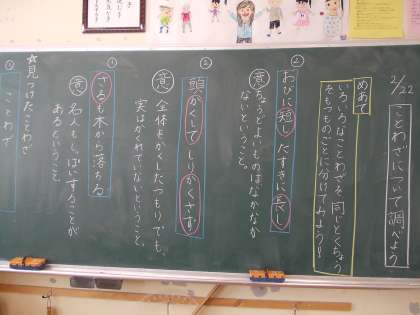 2/22
ことわざについて調べよう
めあて
いろいろなことわざを同じとくちょう
をもつものごとに分けてみよう!
②
おびに短したすきに長し
意 ちょうどよいものはなかなか
ないということ。
②
頭かくしてしりかくさず
意 全体をかくしたつもりでも、
実はかくれていないということ。
①
さるも木から落ちる
意 名人もしっぱいすることが
あるということ
☆見つけたことわざ
ことわざ